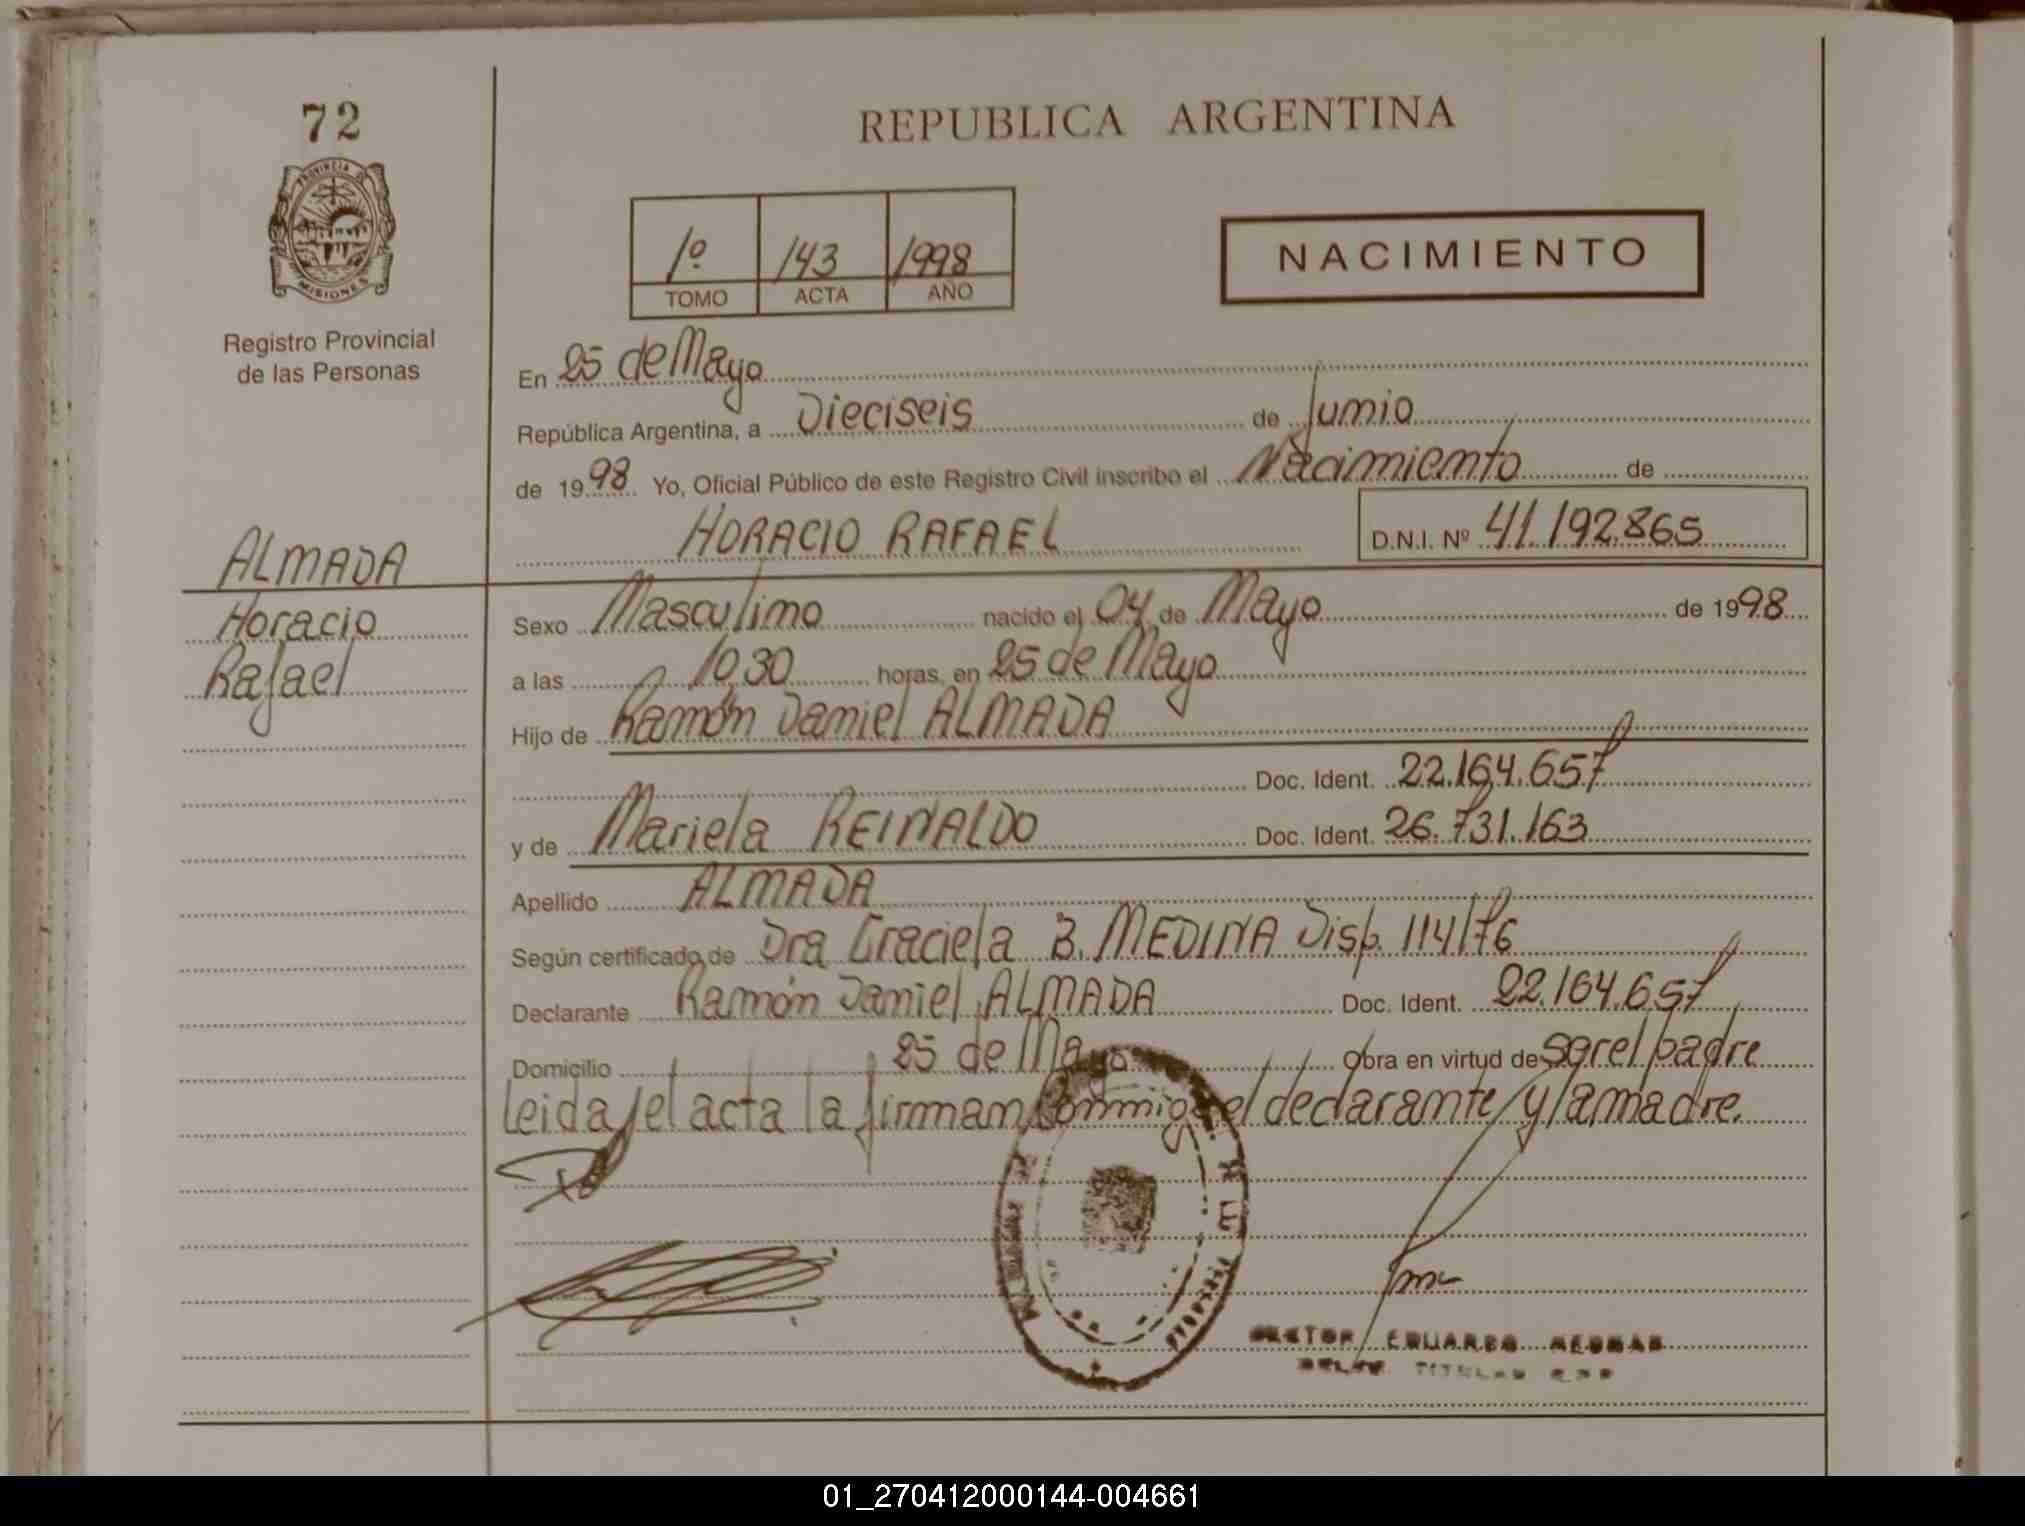 72
REPUBLICA ARGENTINA
PROVINCIA DE
MISIONES
Registro Provincial
de las Personas
1º 143 1998
TOMO ACTA AÑO
NACIMIENTO
En 25 de Mayo
República Argentina, a Dieciseis de Junio
de 1998 Yo, Oficial Público de este Registro Civil inscribo el Nacimiento de
HORACIO RAFAEL D.N.I. Nº 41.192.865
ALMADA
Horacio
Rafael
Sexo Masculino nacido el 04 de Mayo de 1998
a las 10,30 horas, en 25 de Mayo
Hijo de Ramón Daniel ALMADA
Doc. Ident. 22.164.657
y de Mariela REINALDO Doc. Ident. 26.731.163
Apellido ALMADA
Según certificado de Dra Graciela B. MEDINA Disp. 114/76
Declarante Ramón Daniel ALMADA Doc. Ident. 22.164.657
Domicilio 25 de Mayo Obra en virtud de ser el padre
Leida el acta la firman conmigo el declarante y la madre.
EDUARDO
TITULAR
01_270412000144-004661